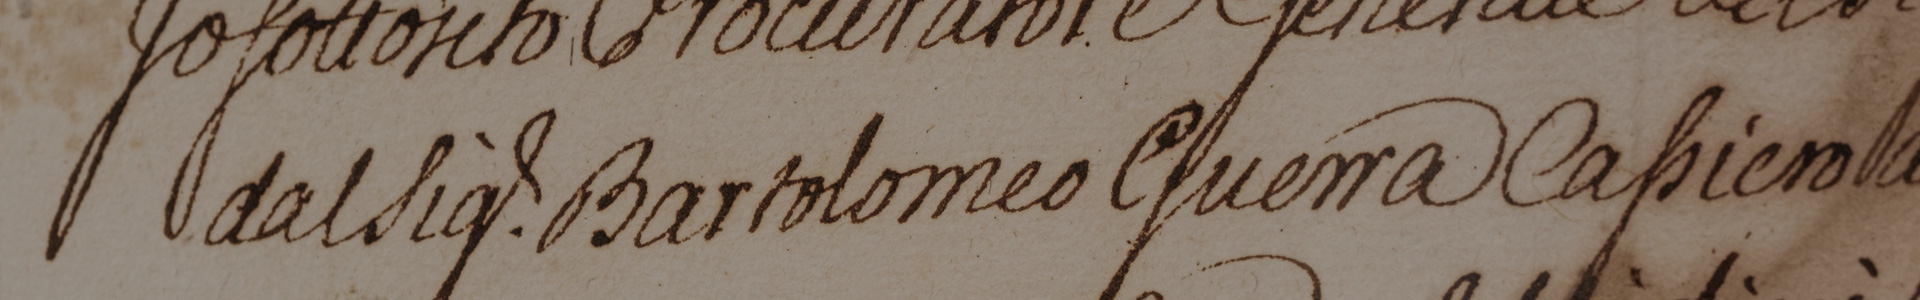 Io sottoscritto Procuratore Generale
dal Sigr. Bartolomeo Guerra Cassiero